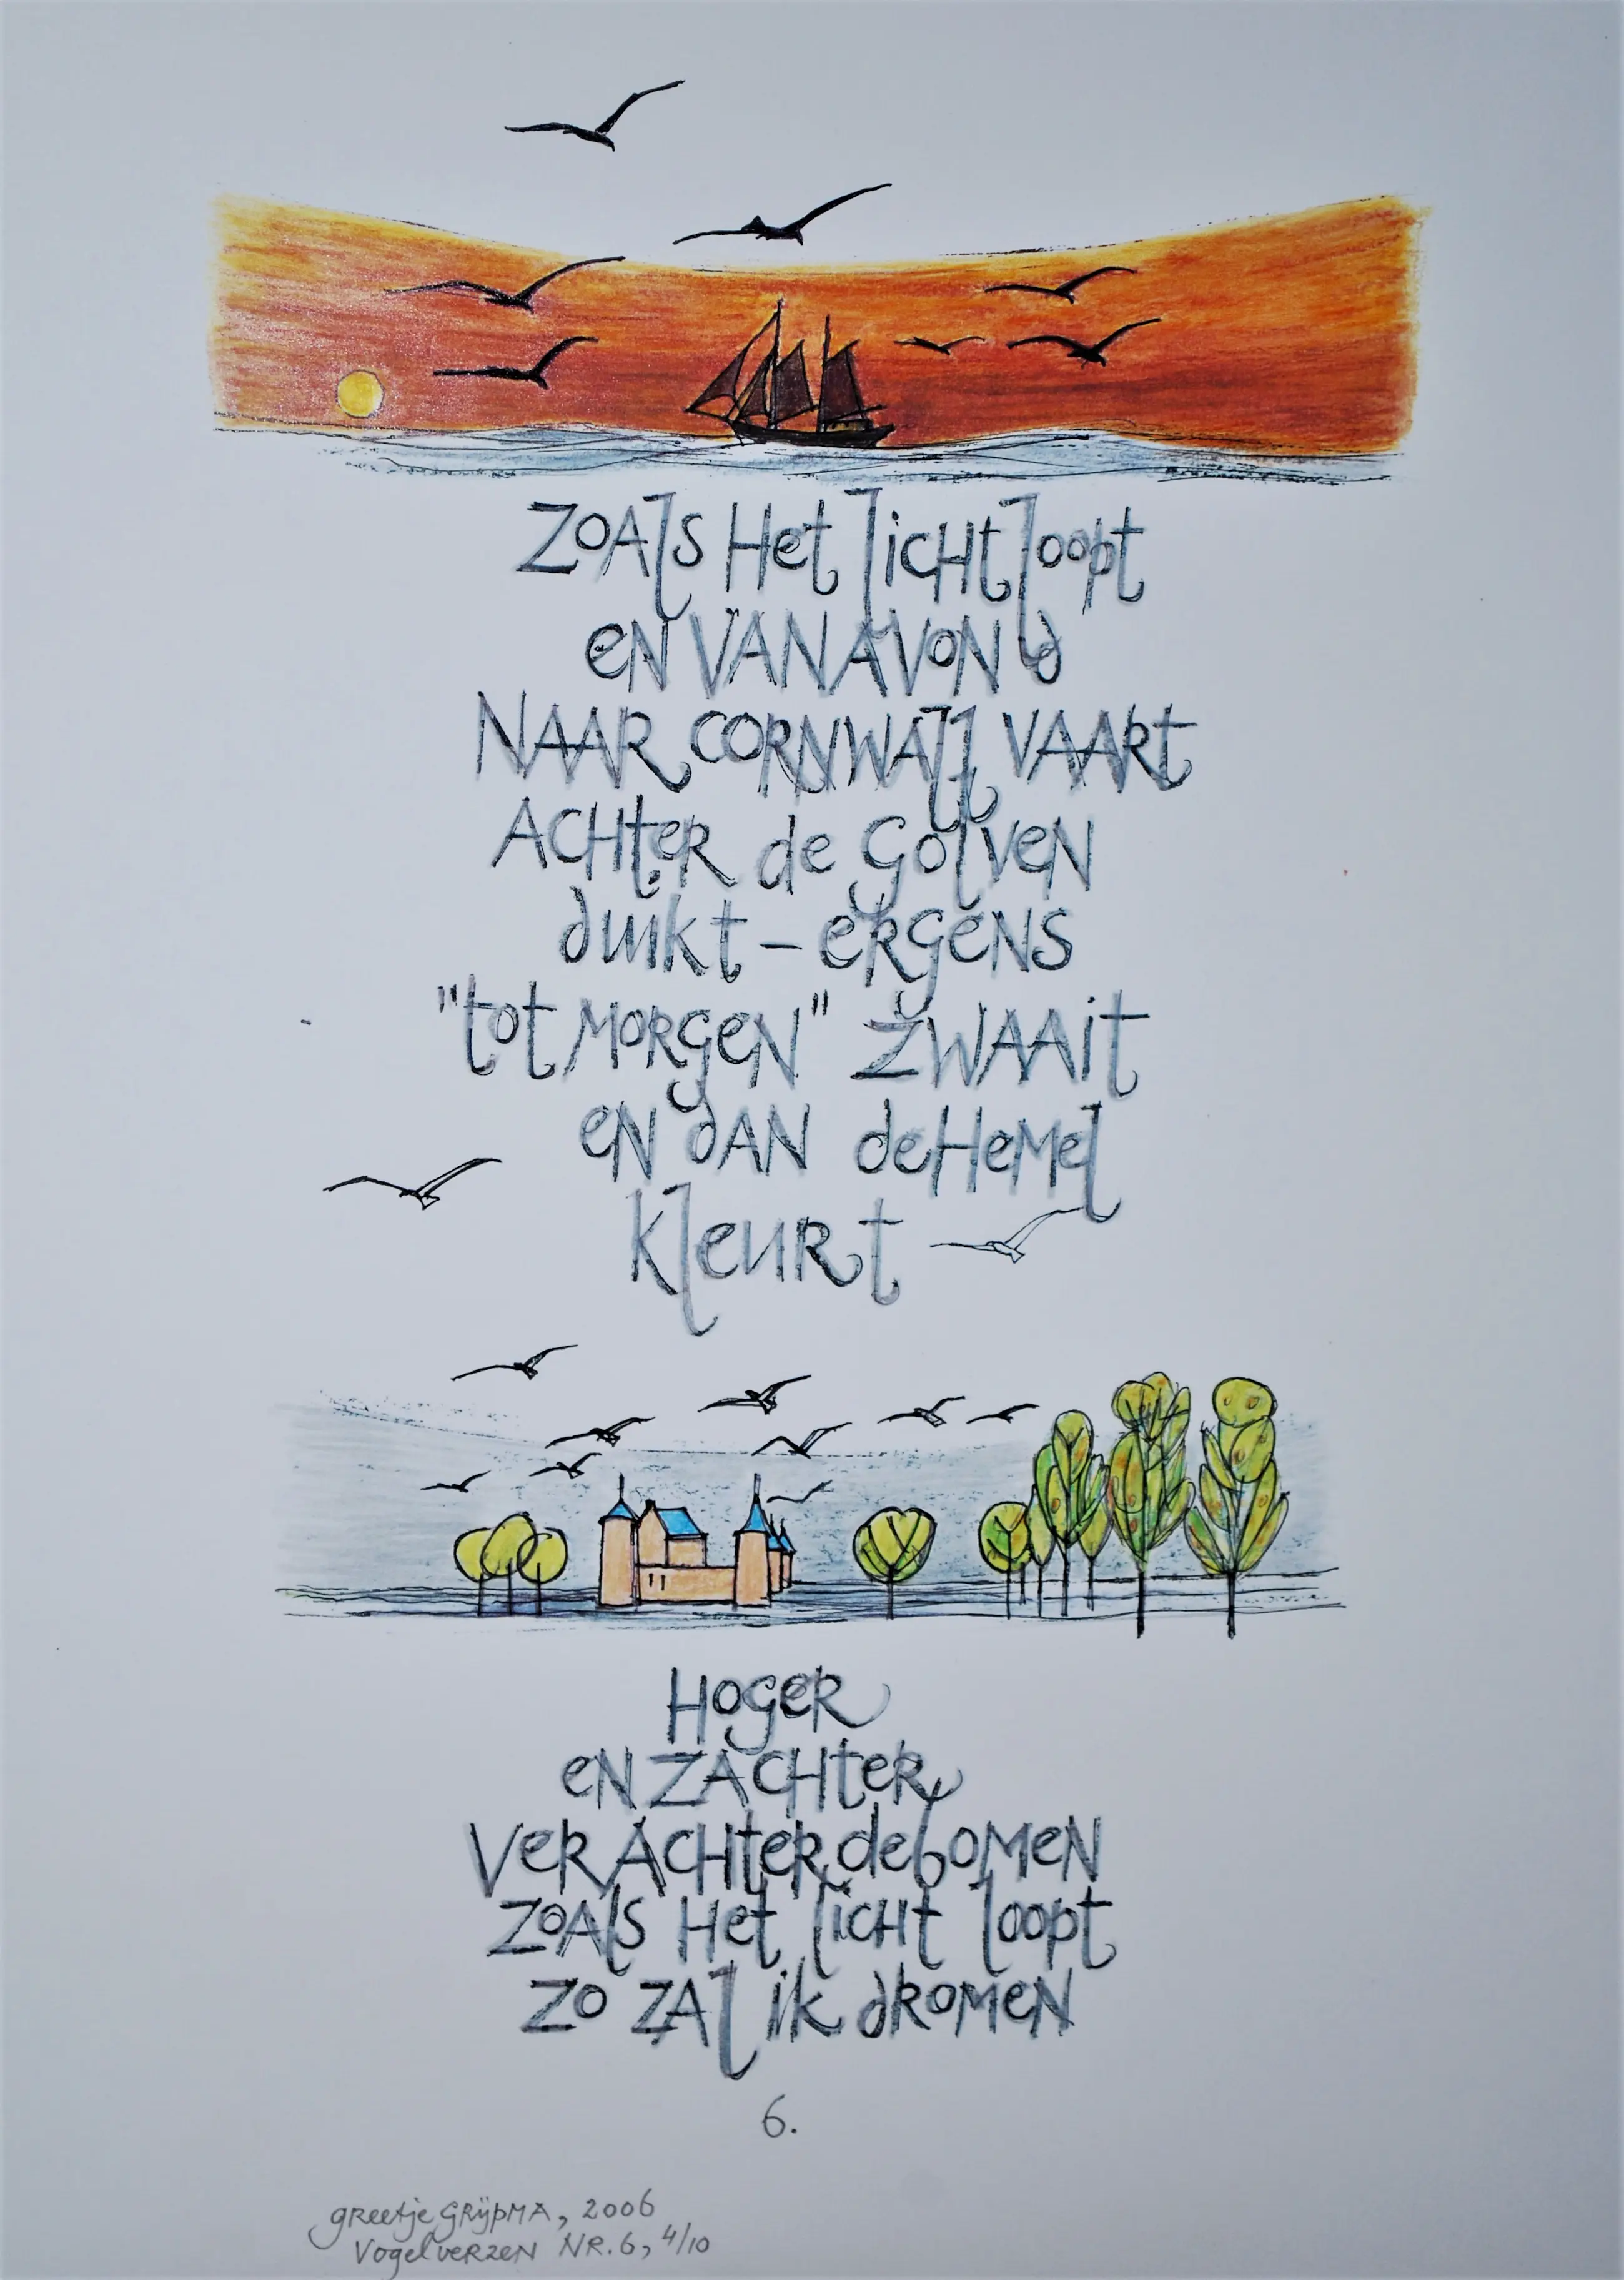 Zoals Het licht loopt
en van avond
naar Cornwall vaart
achter de golven
duikt – ergens
"tot morgen" zwaait
en dan de Hemel
kleurt
Hoger
en zachter
ver achter de bomen
zoals Het licht loopt
zo zal ik dromen
6.
greetje Grijpma, 2006
Vogelverzen NR. 6, 4/10